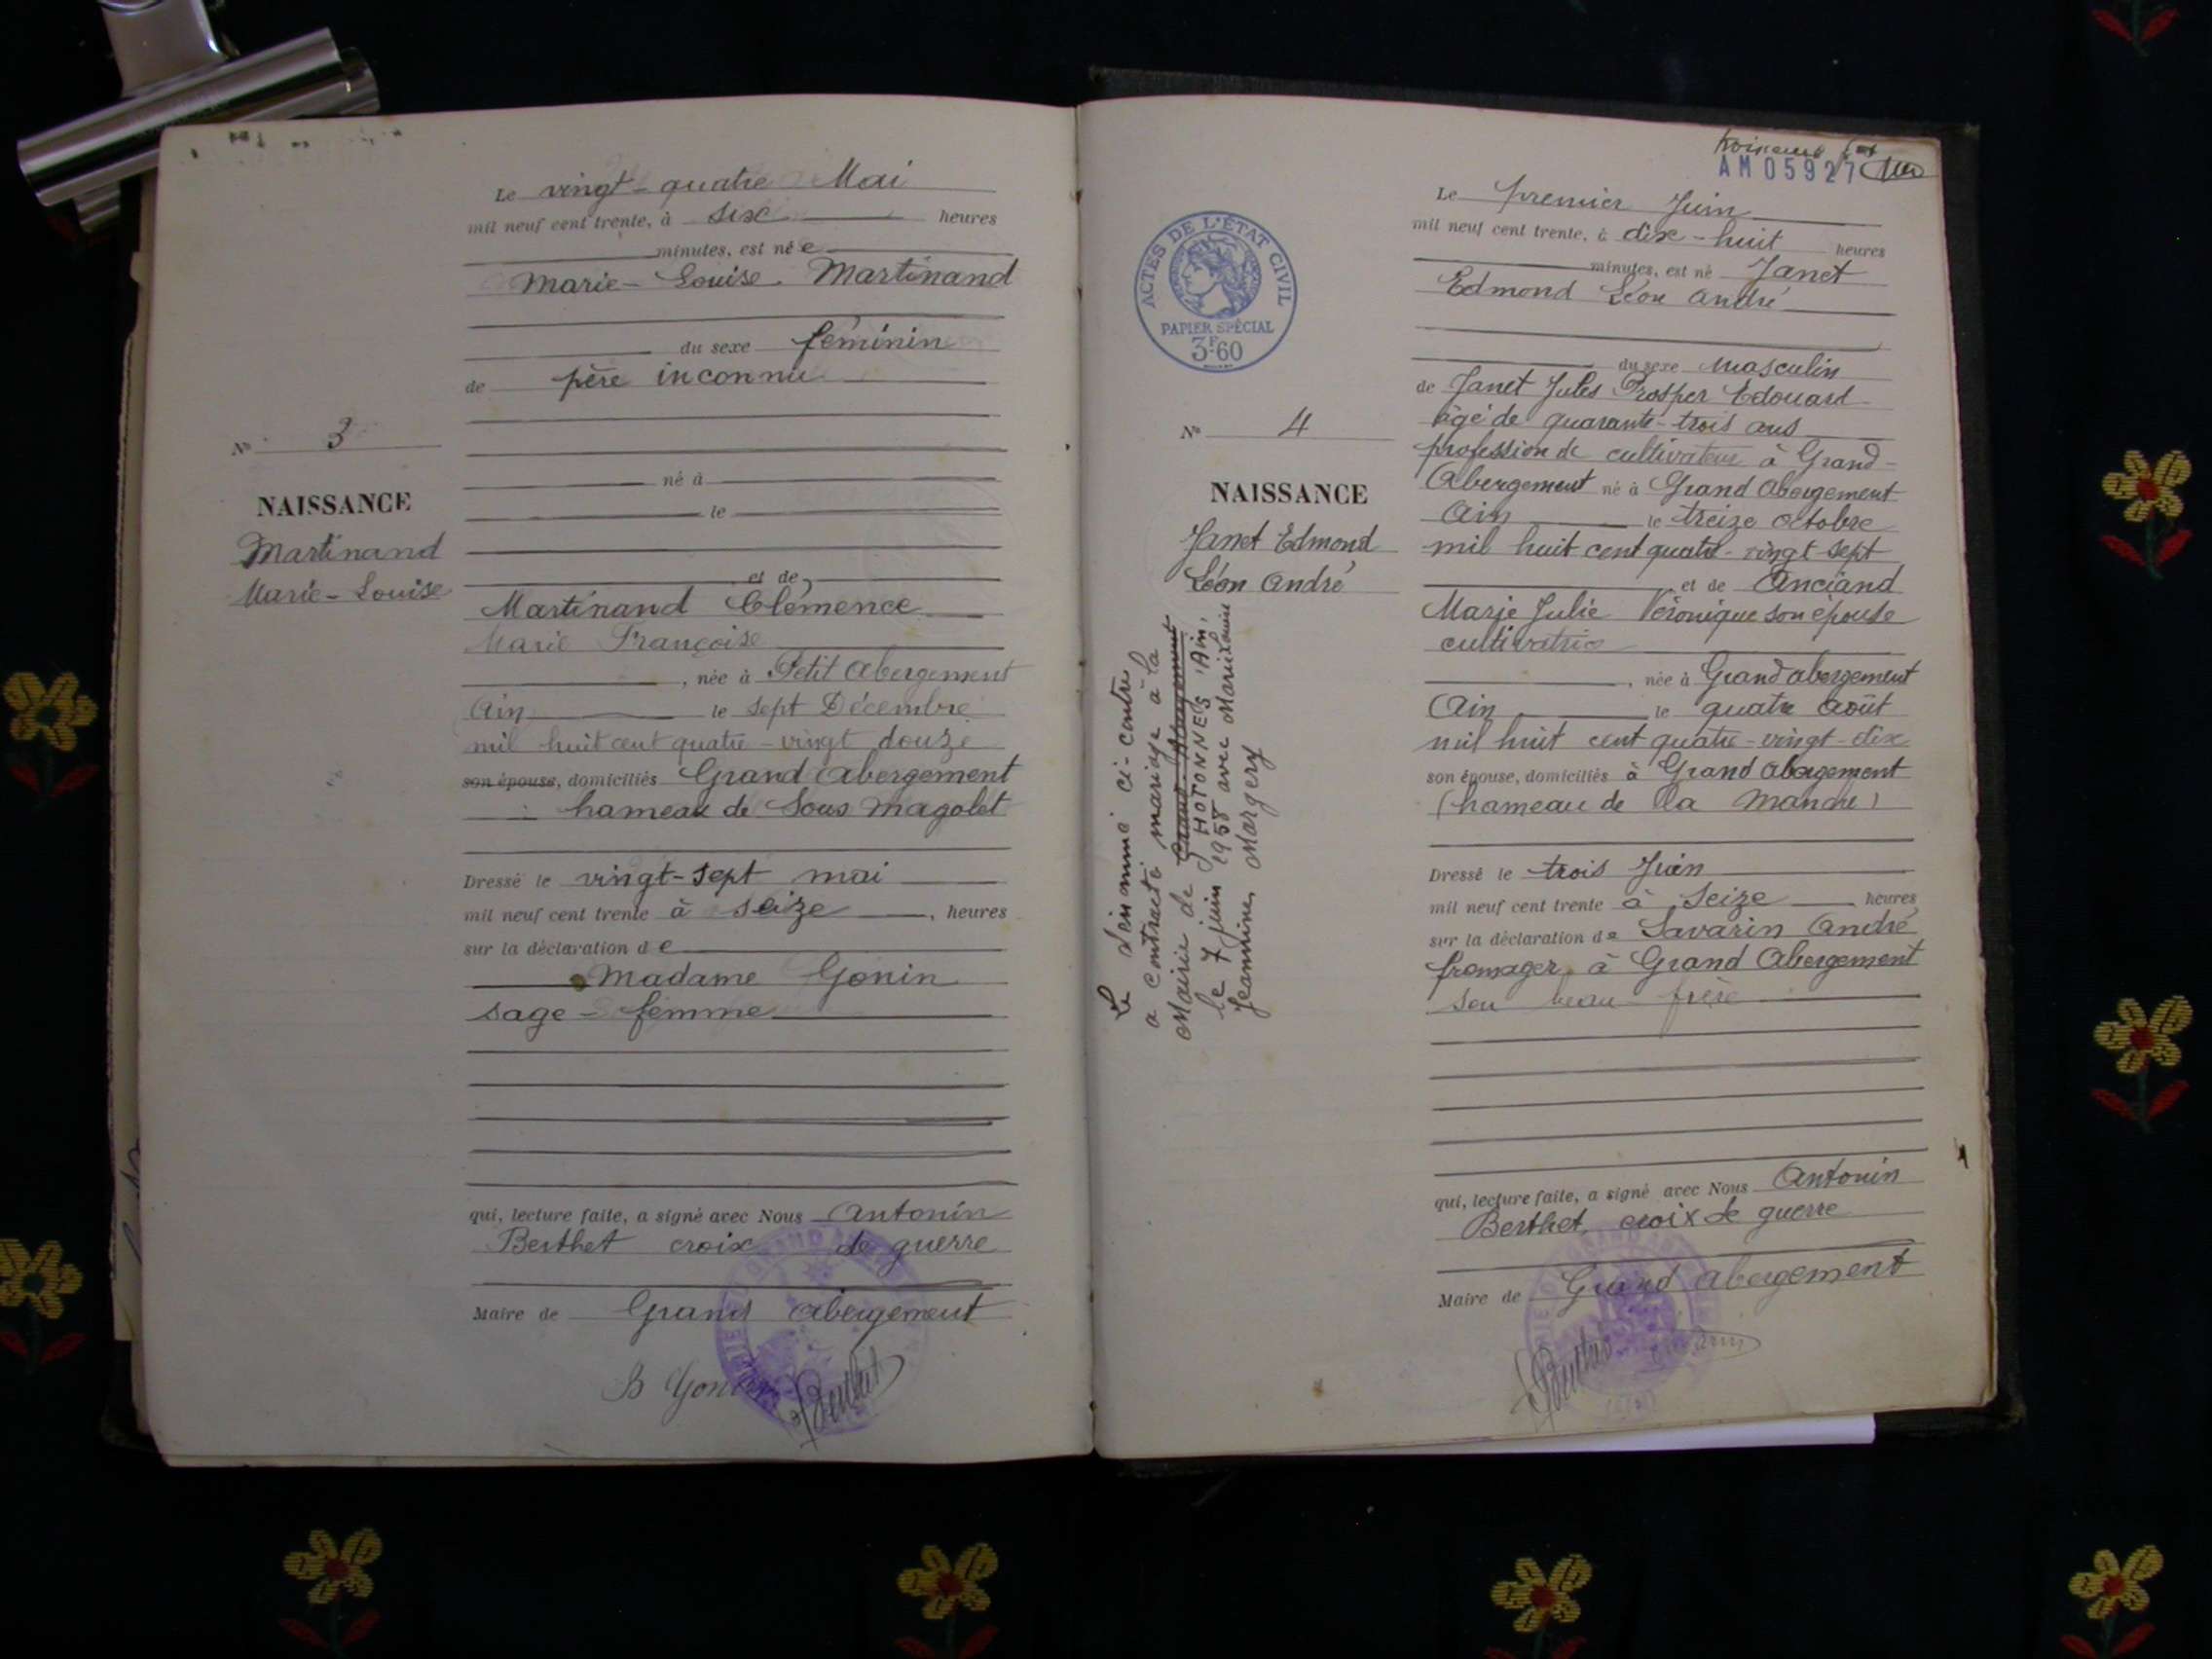 Le vingt-quatre Mai
mil neuf cent trente, à six heures
minutes, est né e
Marie-Louise Martinand
du sexe féminin
de père inconnu
né à
le
et de
Martinand Clémence
Marie Françoise
, née à Petit Abergement
Ain le sept Décembre
mil huit cent quatre-vingt douze
son épouse, domiciliés Grand Abergement
hameau de Sous Magolet
Dressé le vingt-sept mai
mil neuf cent trente à seize, heures
sur la déclaration de
Madame Gonin
sage-femme
qui, lecture faite, a signé avec Nous Antonin
Berthet croix de guerre
Maire de Grand Abergement
B Gonin
Berthet
No 3
NAISSANCE
Martinand
Marie-Louise
AM 05927
ACTES DE L'ÉTAT CIVIL
PAPIER SPÉCIAL
3F.60
No 4
NAISSANCE
Janet Edmond
Léon André
Le dénommé ci-contre
a contracté mariage à la
Mairie de Grand-Abergement
HOTONNES (Ain)
le 7 juin 1958 avec Marie Louise
Jeannine Margery
Le premier Juin
mil neuf cent trente, à dix-huit heures
minutes, est né Janet
Edmond Léon André
du sexe masculin
de Janet Jules Prosper Edouard
âgé de quarante-trois ans
profession de cultivateur à Grand-
Abergement né à Grand Abergement
Ain le treize octobre
mil huit cent quatre-vingt sept
et de Anciand
Marie Julie Véronique son épouse
cultivatrice
, née à Grand abergement
Ain le quatre Août
mil huit cent quatre-vingt-dix
son épouse, domiciliés à Grand Abergement
(hameau de la Manche)
Dressé le trois Juin
mil neuf cent trente à seize heures
sur la déclaration de Savarin André
fromager à Grand Abergement
son beau frère
qui, lecture faite, a signé avec Nous Antonin
Berthet, croix de guerre
Maire de Grand abergement
Berthet